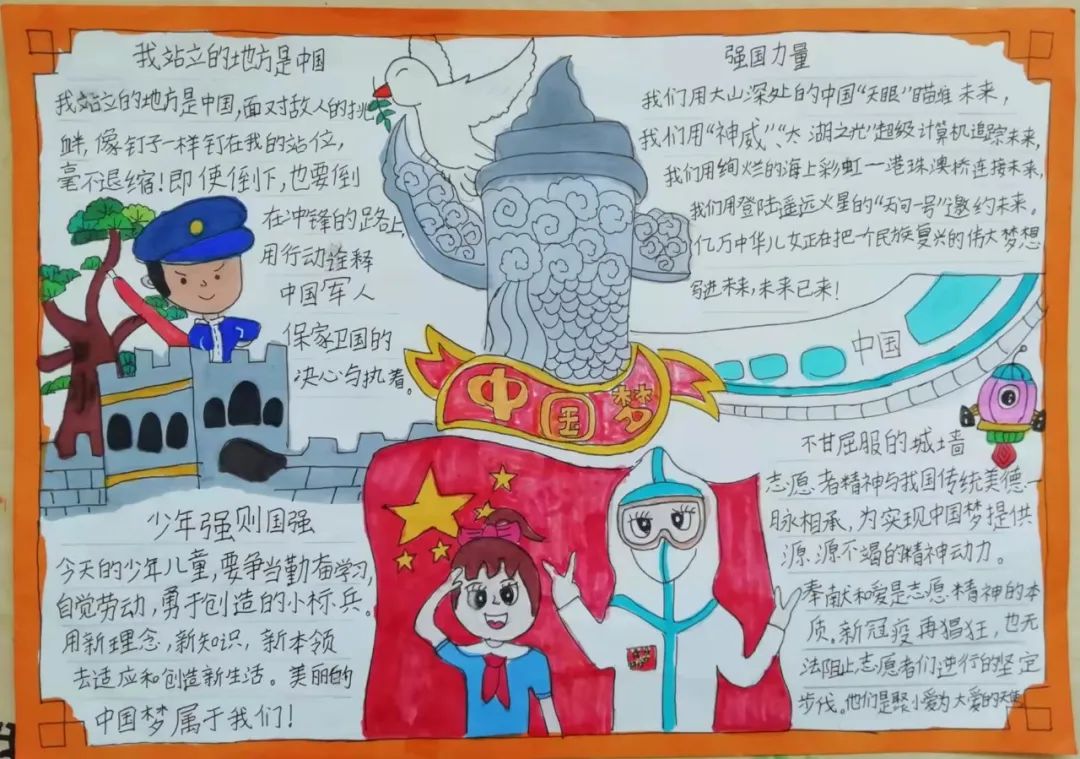 我站立的地方是中国
我站立的地方是中国,面对敌人的挑
衅,像钉子一样钉在我的站位,
毫不退缩!即使倒下,也要倒
在冲锋的路上,
用行动诠释
中国军人
保家卫国的
决心与执着。
强国力量
我们用大山深处的中国“天眼”瞄准未来,
我们用“神威”、“太湖之光”超级计算机追踪未来,
我们用绚烂的海上彩虹一港珠澳桥连接未来,
我们用登陆遥远火星的“天问一号”邀约未来。
亿万中华儿女正在把一个民族复兴的伟大梦想
写进未来,未来已来!
中国
中国梦
少年强则国强
今天的少年儿童,要争当勤奋学习,
自觉劳动,勇于创造的小标兵。
用新理念,新知识,新本领
去适应和创造新生活。美丽的
中国梦属于我们!
不甘屈服的城墙
志愿者精神与我国传统美德一
脉相承,为实现中国梦提供
源源不竭的精神动力。
奉献和爱是志愿精神的本
质。新冠疫再猖狂,也无
法阻止志愿者们逆行的坚定
步伐。他们是聚小爱为大爱的天使